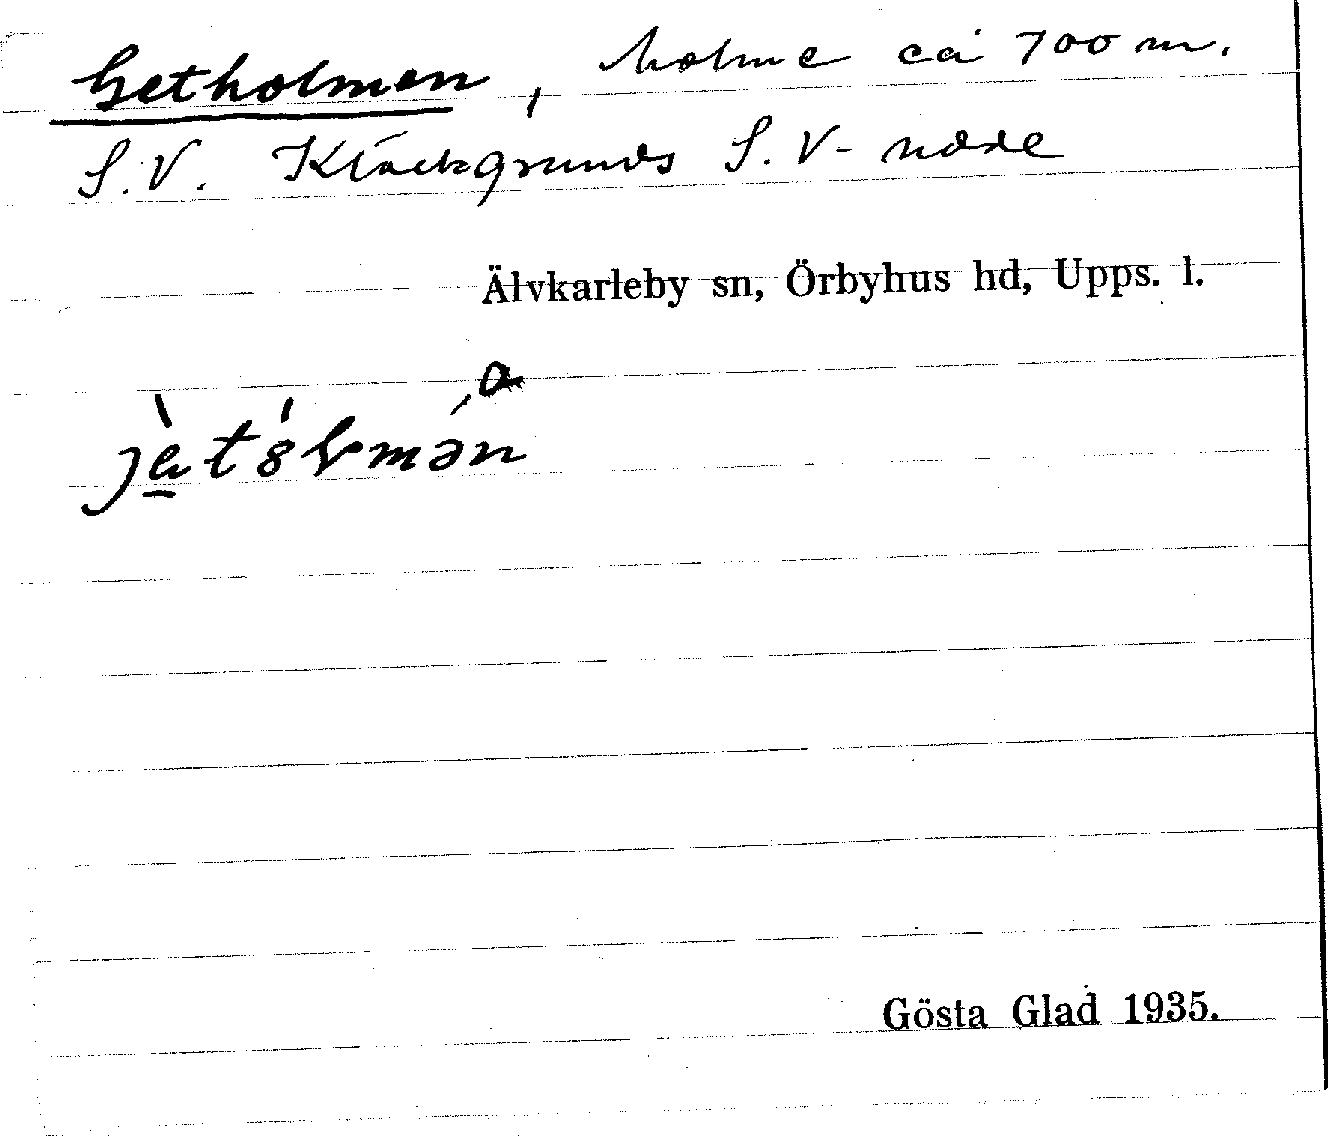 Getholmen, holme ca 700 m.
S.V. Klackgrunds S.V-udde
Älvkarleby sn, Örbyhus hd, Upps. l.
a
Gösta Glad 1935.